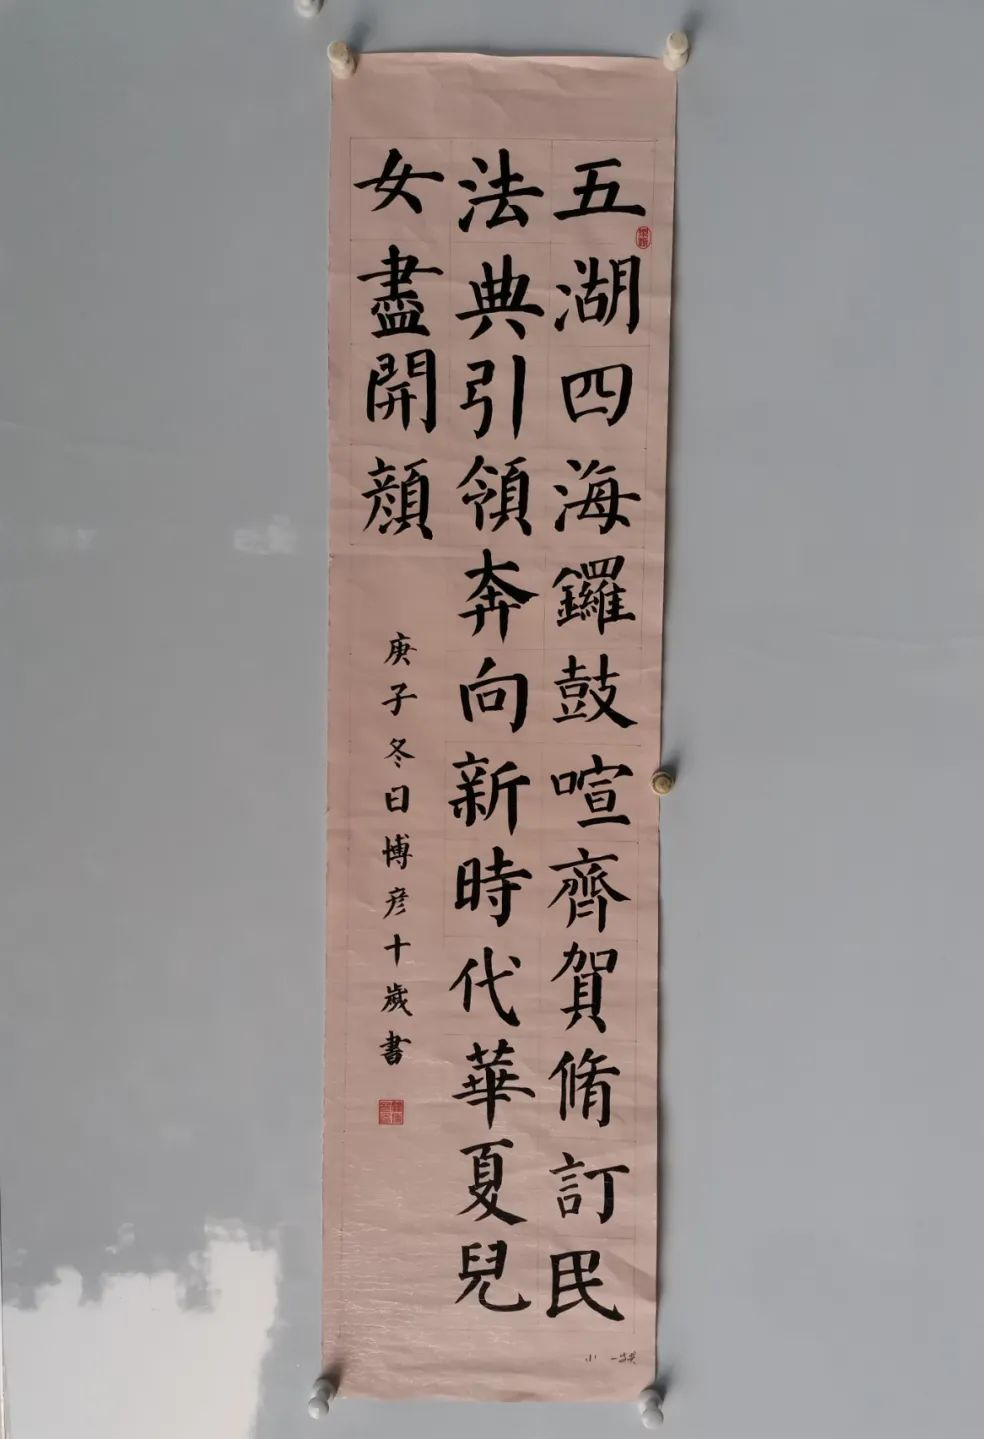 五湖四海鑼鼓喧齊賀脩訂民
法典引領奔向新時代華夏兒
女盡開顏
庚子冬日博彥十歲書